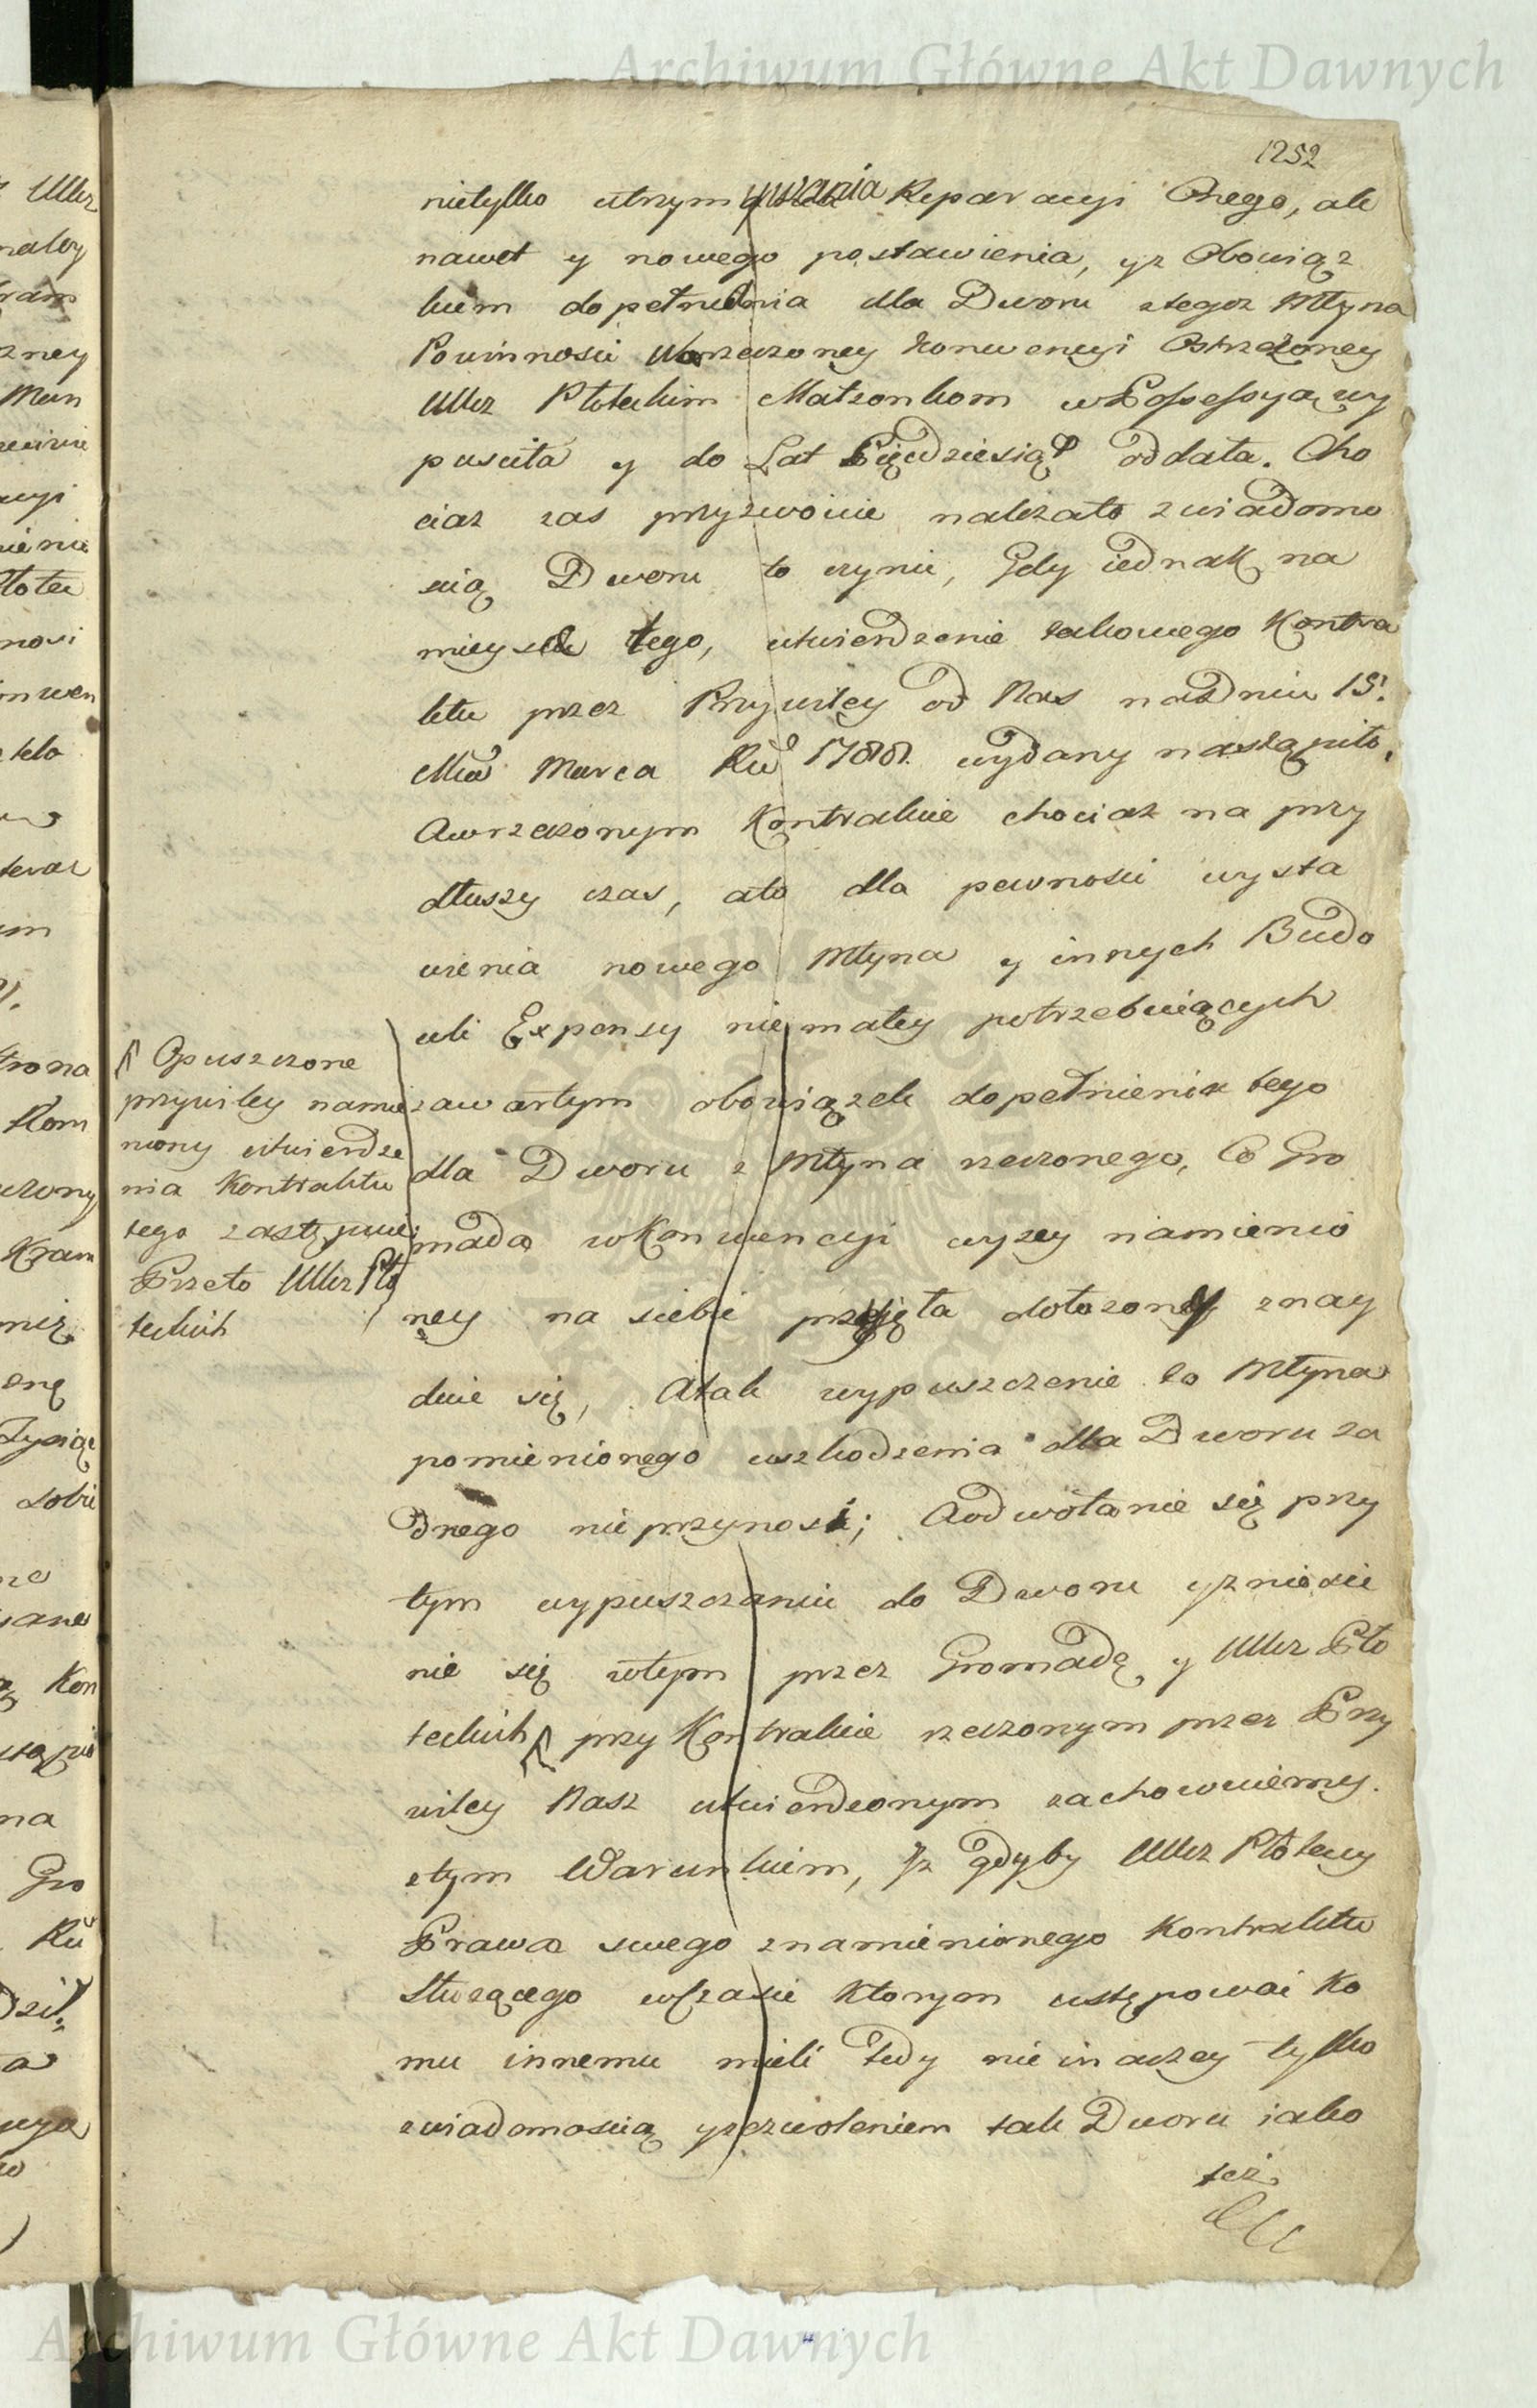 Archiwum Główne Akt Dawnych
1252
nietylko utrzymywania Reparacyi Onego, ale
nawet y nowego postawienia, yz Obowiąz
kiem dopełnienia dla Dworu ztegoz Młyna
Powinnosci Wrzeczoney Konwencyi Ostrzezoney
Ullrz Płoteckim Małzonkom wPossessyą wy
pusciła y do Lat Pięcdziesiąt oddała. Cho
ciaz zas przyzwoicie nalezało zwiadomo
scią Dworu to czynic, Gdy iednak na
mieysce tego, utwierdzenie takowego Kontra
ktu przez Przywiley od Nas nadniu 15.
Mca Marca Ru 1788. wydany nastąpiło.
Awrzeczonym Kontrakcie chociaz na przy
dłuszy czas, ato dla pewnosci wysta
wienia nowego Młyna y innych Budo
wli Expensy niemałey potrzebuiących
zawartym obowiązek dopełnienia tego
dla Dworu z Młyna rzeczonego, Co Gro
mada wKonwencyi wyzey namienio
ney na siebie przyięła dołozony znay
duie się, Atak wypuszczenie to Młyna
pomienionego uszkodzenia dla Dworu za
dnego nieprzynosi; Aodwołanie się przy
tym wypuszczaniu do Dworu yzniesie
nie się wtym przez Gromadę y Ullrz Pło
teckich przy Kontrakcie rzeczonym przez Przy
wiley Nasz utwierdzonym zachowuiemy.
ztym Warunkiem, Jz gdyby Ullrz Płoteccy
Prawa swego znamienionego Kontraktu
Słuzącego wCzasie Ktorym ustępowac Ko
mu innemu mieli Tedy nieinaczey tylko
zwiadomoscią yzezwoleniem tak Dworu iako
tez
Opuszczone
przywiley namie
niony utwierdze
nia Kontraktu
tego zastępuie
Przeto Ullrz Pło
teckich
Archiwum Główne Akt Dawnych